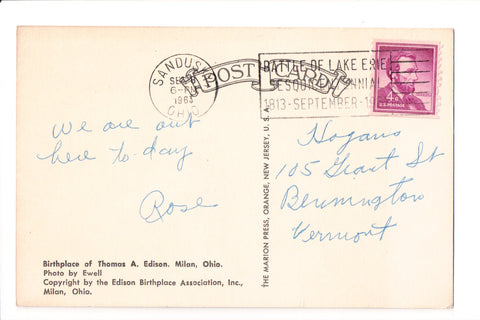 SANDUSKY
SEP
6-PM
1963
OHIO
POST CARD
BATTLE OF LAKE ERIE
SESQUICENTENNIAL
1813-SEPTEMBER-1
4¢
U.S. POSTAGE
We are out
here to-day
Rose
Hogans
105 Grant St
Bennington
Vermont
THE MARION PRESS, ORANGE, NEW JERSEY, U.S.A.
Birthplace of Thomas A. Edison. Milan, Ohio.
Photo by Ewell
Copyright by the Edison Birthplace Association, Inc.,
Milan, Ohio.